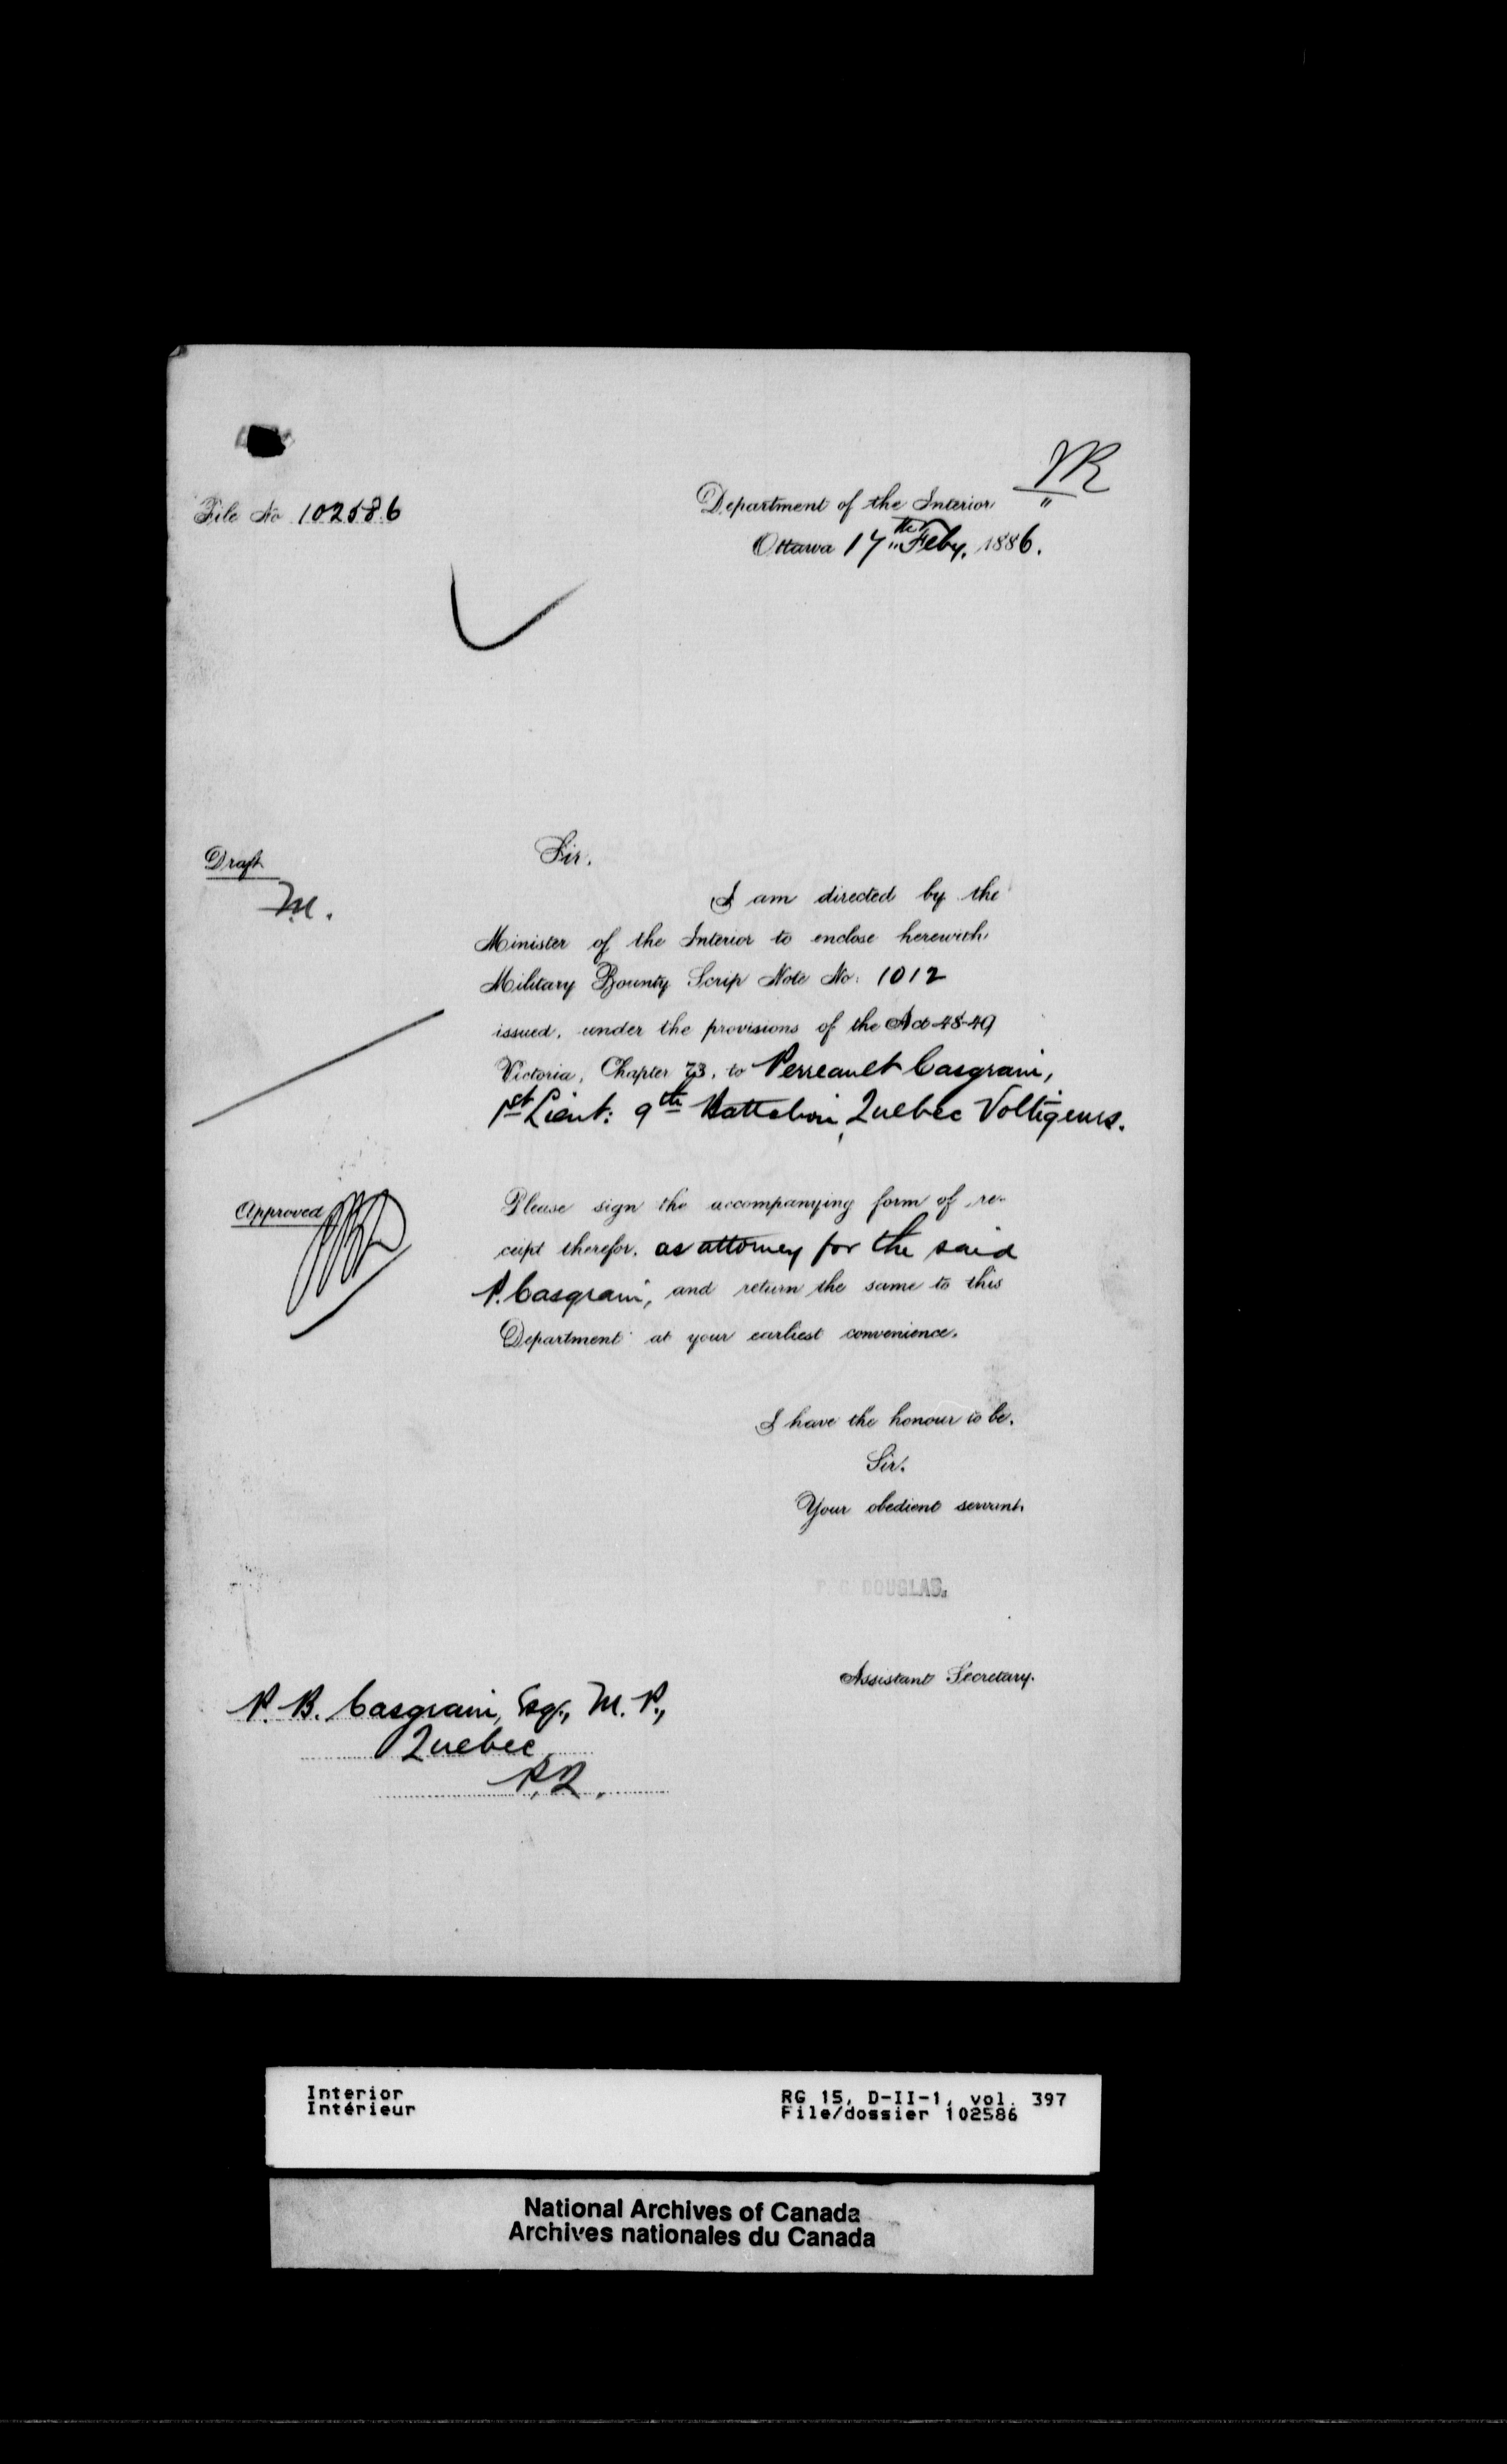 File No 102586
Department of the Interior
Ottawa 17th Feby. 1886.
Draft
M.
Sir.
I am directed by the
Minister of the Interior to enclose herewith
Military Bounty Scrip Note No. 1012
issued, under the provisions of the Act 48-49
Victoria, Chapter 73, to Perreault Casgrain,
1st Lieut: 9th Battalion, Quebec Voltigeurs.
Approved
Please sign the accompanying form of re-
ceipt therefor, as attorney for the said
P. Casgrain, and return the same to this
Department at your earliest convenience.
I have the honour to be,
Sir.
Your obedient servant,
DOUGLAS.
Assistant Secretary.
P. B. Casgrain, Esq., M. P.,
Quebec
P.Q.
Interior
Intérieur
RG 15, D-II-1, vol. 397
File/dossier 102586
National Archives of Canada
Archives nationales du Canada